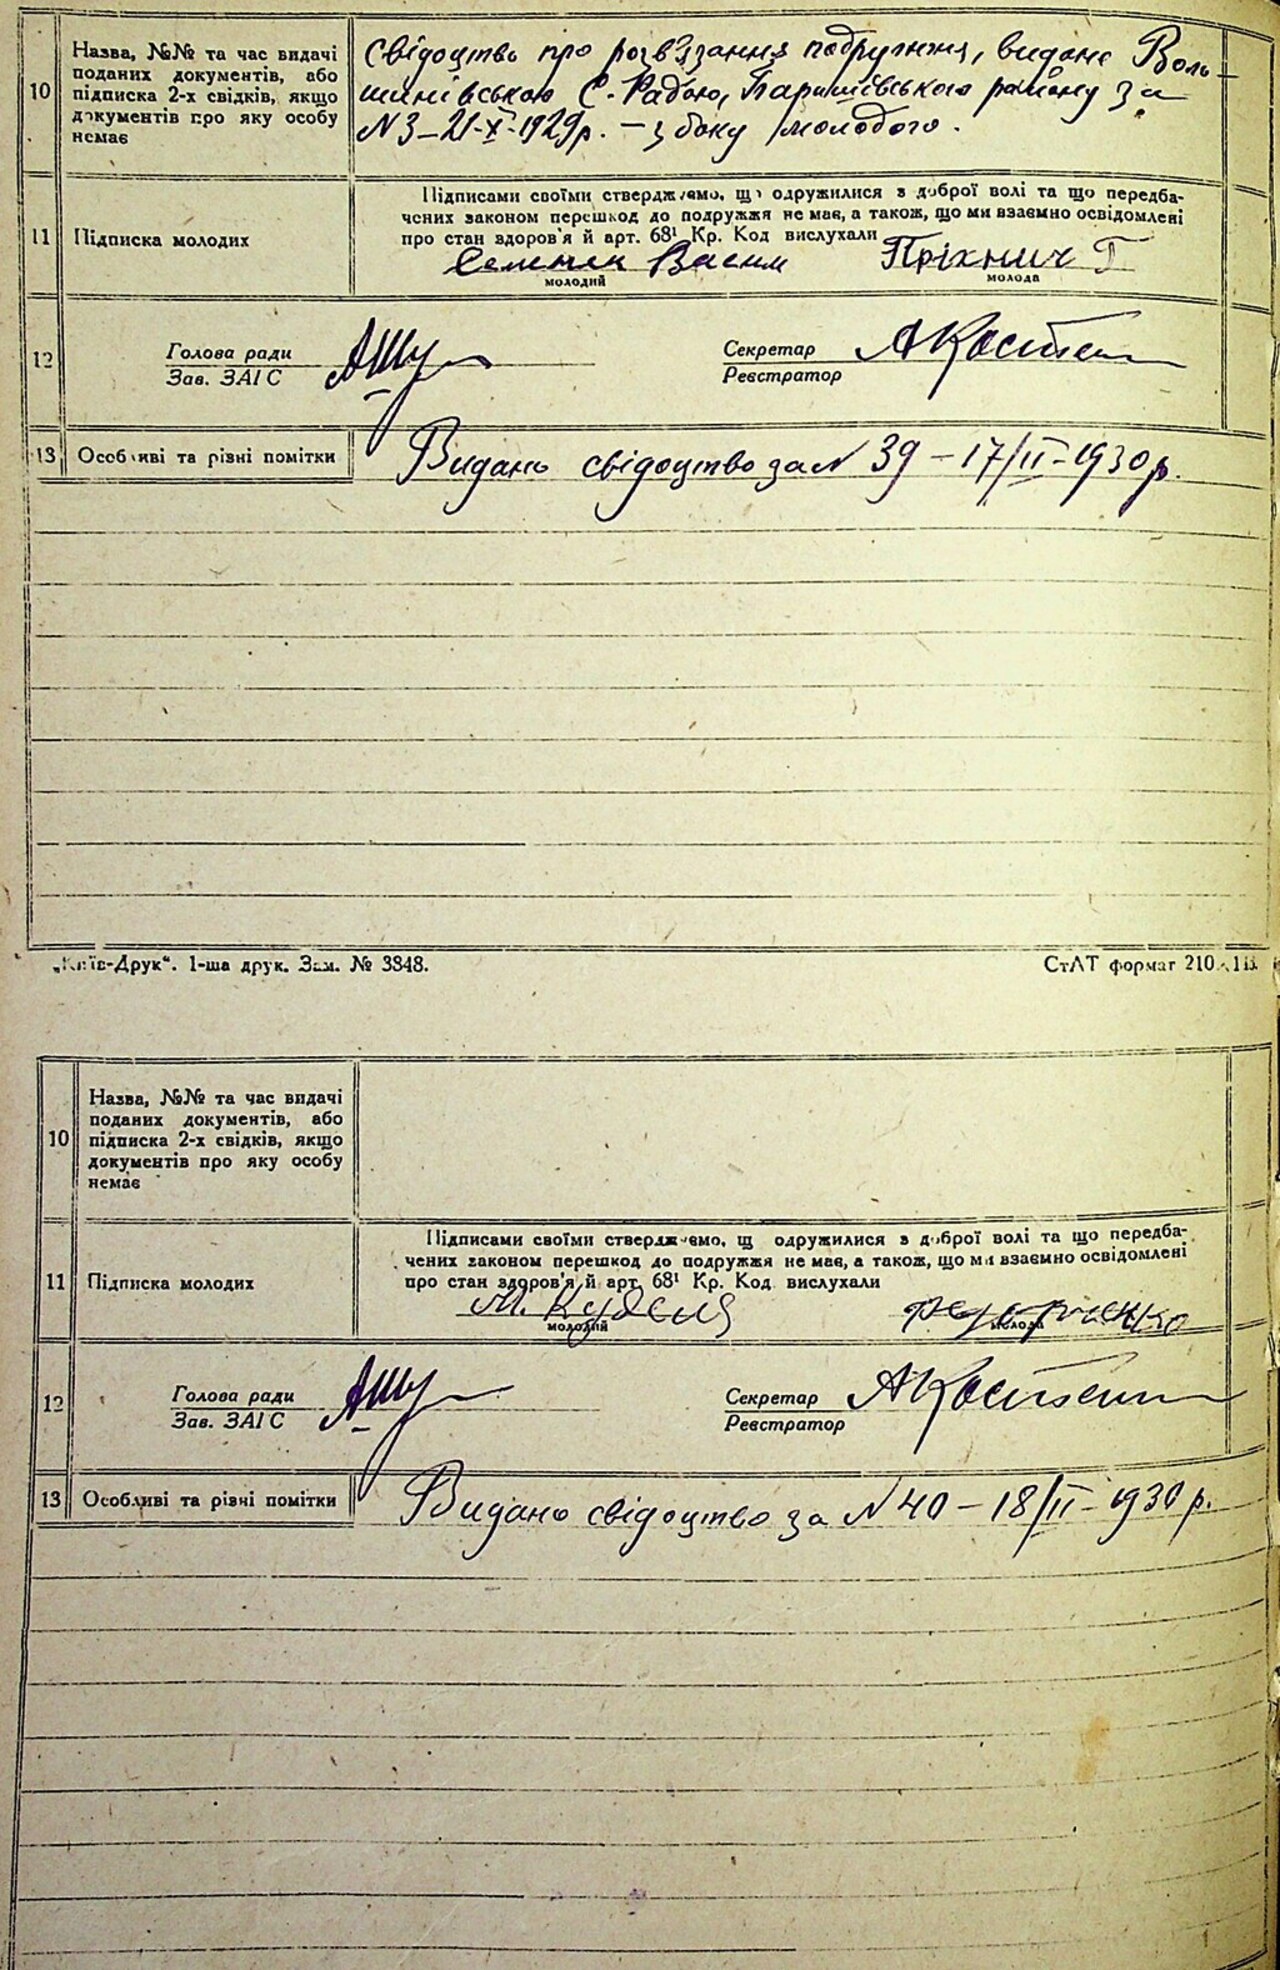 10
Назва, №№ та час видачі
поданих документів, або
підписка 2-х свідків, якщо
документів про яку особу
немає
Свідоцтво про розв'язання подружжя, видане Воль-
шинівською С. Радою, Баришівського району за
N 3 – 21-X-1929 р. – з боку молодого.
11
Підписка молодих
Підписами своїми стверджуємо, що одружилися з доброї волі та що передба-
чених законом перешкод до подружжя не має, а також, що ми взаємно освідомлені
про стан здоров'я й арт. 68¹ Кр. Код вислухали
Семенек Васим Пріхнич Г
молодий молода
12
Голова ради
Зав. ЗАГС
Секретар
Реєстратор
13
Особливі та різні помітки
Видано свідоцтво за N 39 – 17/II – 1930 р.
„Київ-Друк“. 1-ша друк. Зам. № 3348.
СтАТ формат 210
10
Назва, №№ та час видачі
поданих документів, або
підписка 2-х свідків, якщо
документів про яку особу
немає
11
Підписка молодих
Підписами своїми стверджуємо, щ одружилися з доброї волі та що передба-
чених законом перешкод до подружжя не має, а також, що ми взаємно освідомлені
про стан здоров'я й арт. 68¹ Кр. Код вислухали
М.
молодий молода
12
Голова ради
Зав. ЗАГС
Секретар
Реєстратор
13
Особливі та різні помітки
Видано свідоцтво за N 40 – 18/II – 1930 р.